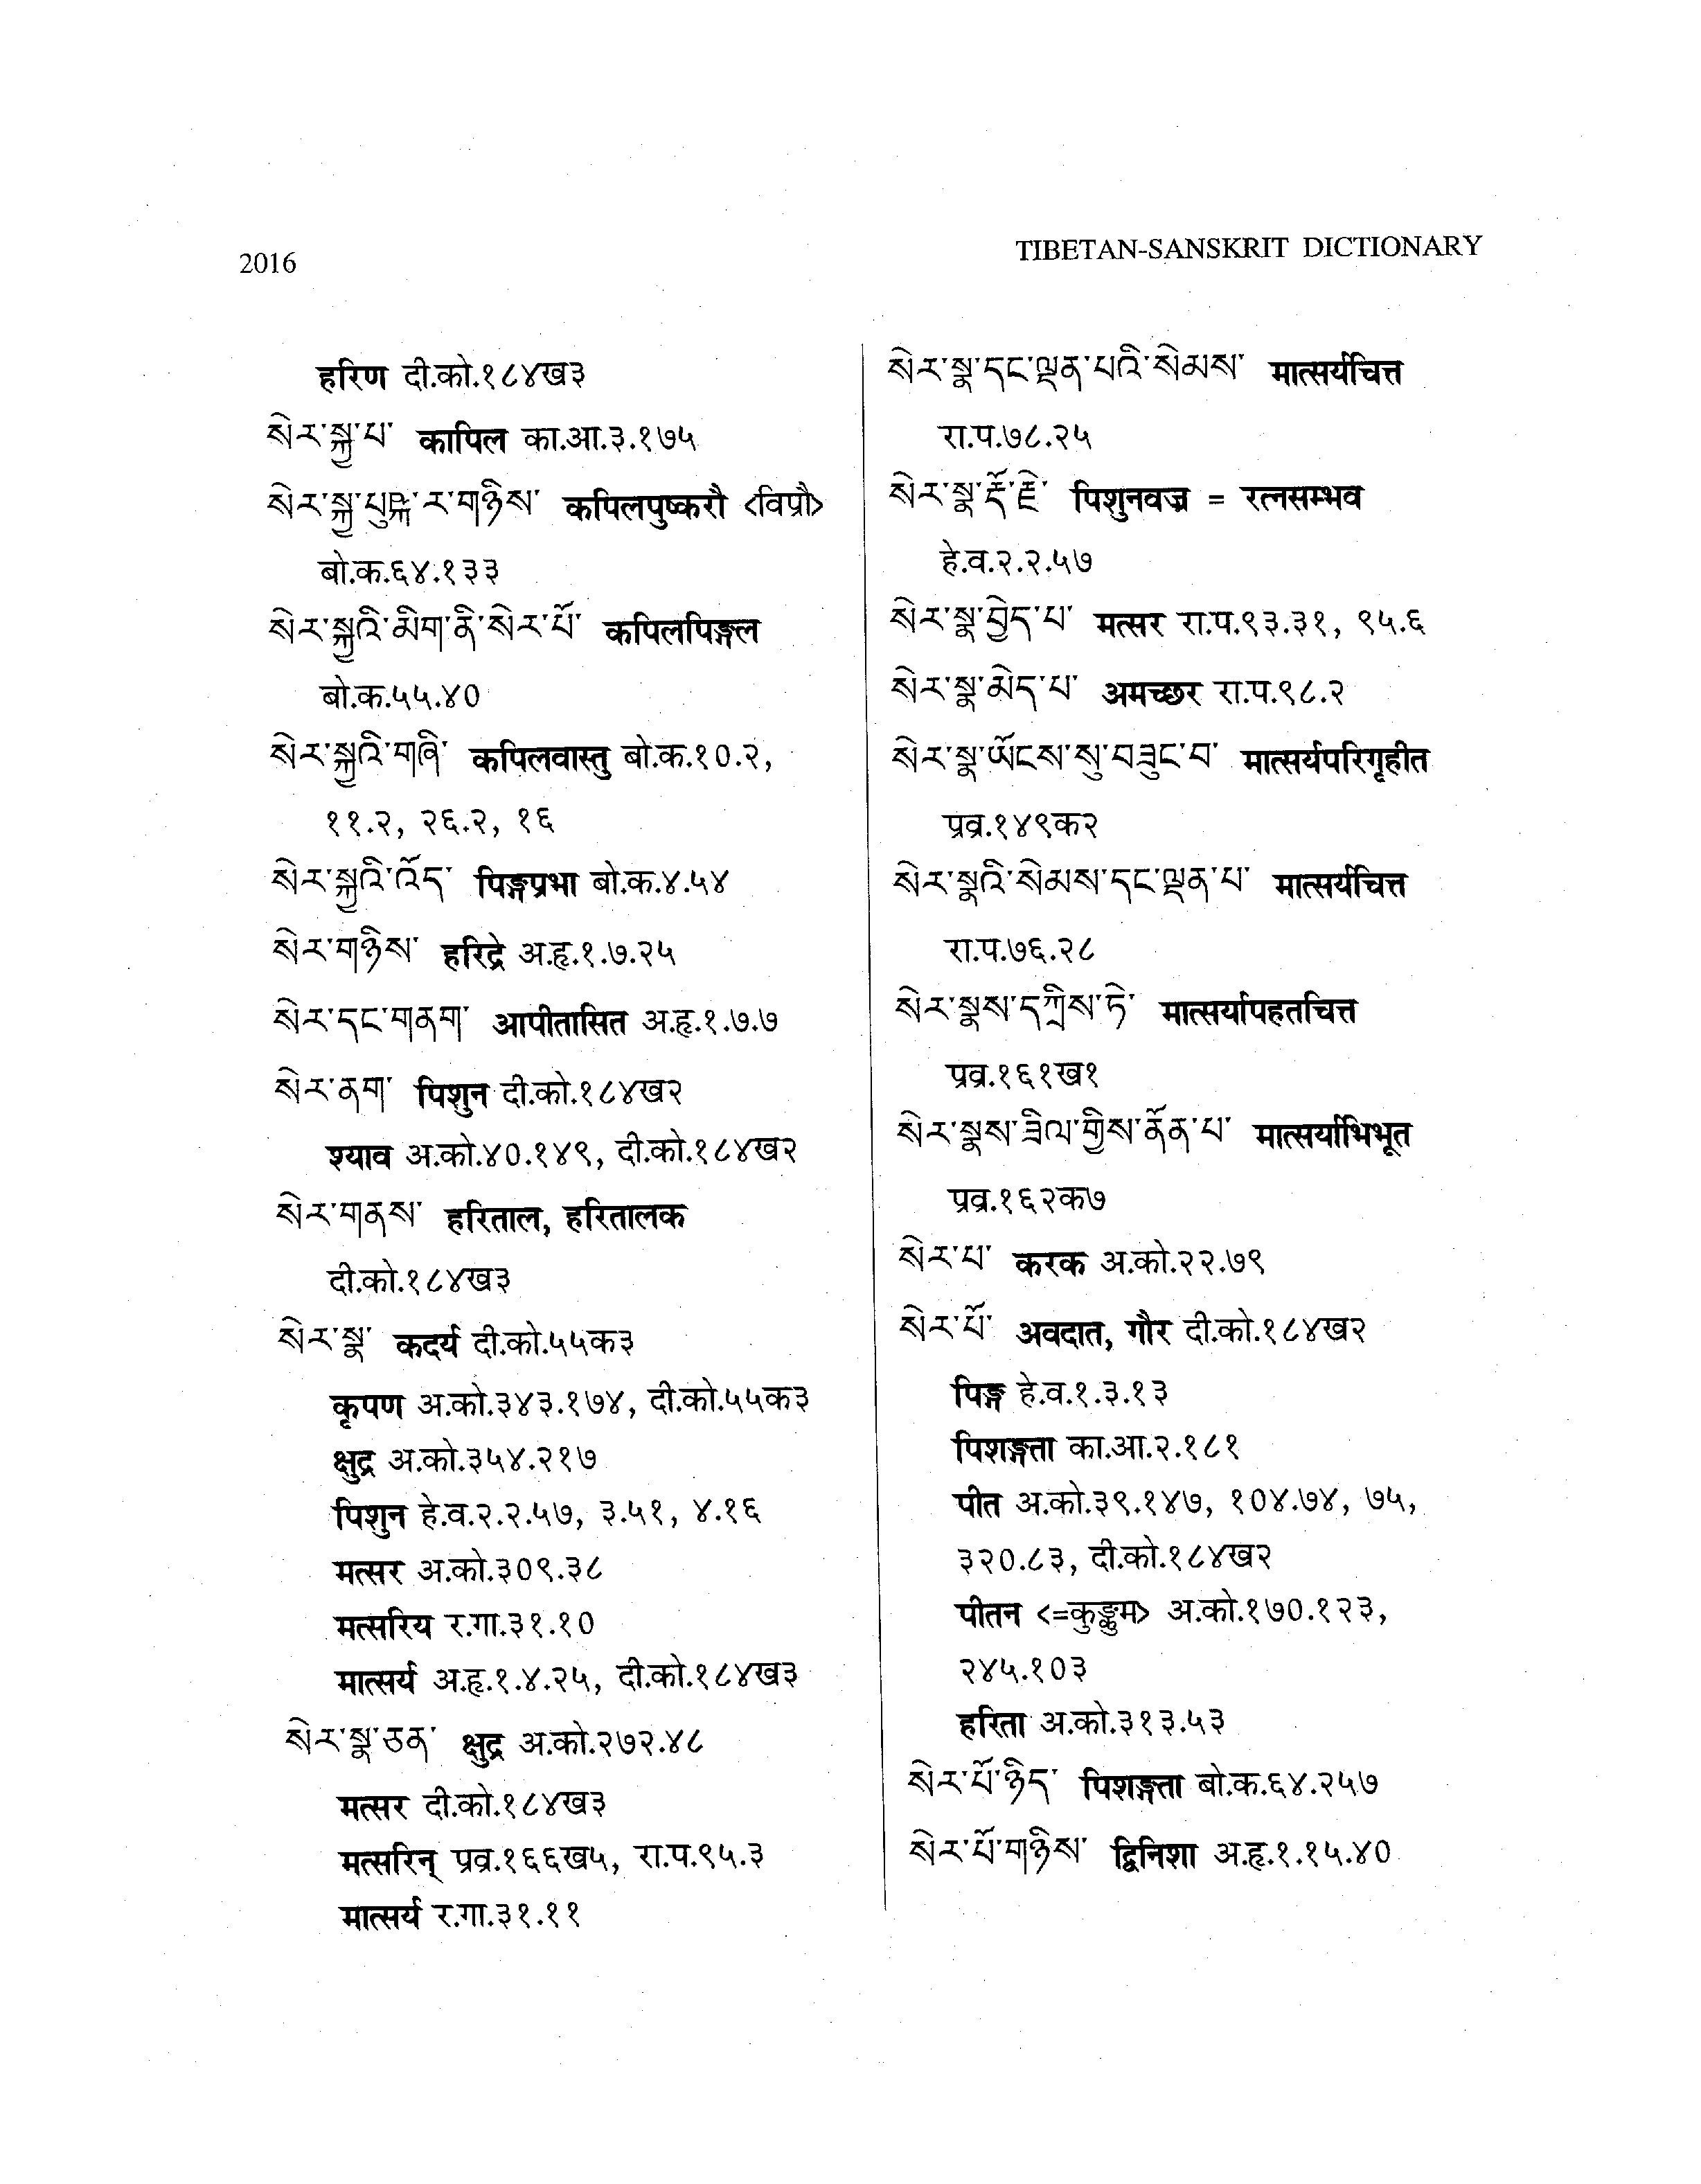 2016
TIBETAN-SANSKRIT DICTIONARY
हरिण दी.को.१८४ख३
སེར་སྐྱ་པ་ कापिल का.आ.३.१७५
སེར་སྐྱ་པུཥྐ་ར་གཉིས་ कपिलपुष्करौ <विप्रौ>
बो.क.६४.१३३
སེར་སྐྱའི་མིག་ནི་སེར་པོ་ कपिलपिङ्गल
बो.क.५५.४०
སེར་སྐྱའི་གཞི་ कपिलवास्तु बो.क.१०.२,
११.२, २६.२, १६
སེར་སྐྱའི་འོད་ पिङ्गप्रभा बो.क.४.५४
སེར་གཉིས་ हरिद्रे अ.हृ.१.७.२५
སེར་དང་གནག་ आपीतासित अ.हृ.१.७.७
སེར་ནག་ पिशुन दी.को.१८४ख२
श्याव अ.को.४०.१४९, दी.को.१८४ख२
སེར་གནས་ हरिताल, हरितालक
दी.को.१८४ख३
སེར་སྣ་ कदर्य दी.को.५५क३
कृपण अ.को.३४३.१७४, दी.को.५५क३
क्षुद्र अ.को.३५४.२१७
पिशुन हे.व.२.२.५७, ३.५१, ४.१६
मत्सर अ.को.३०९.३८
मत्सरिय र.गा.३१.१०
मात्सर्य अ.हृ.१.४.२५, दी.को.१८४ख३
སེར་སྣ་ཅན་ क्षुद्र अ.को.२७२.४८
मत्सर दी.को.१८४ख३
मत्सरिन् प्रव्र.१६६ख५, रा.प.९५.३
मात्सर्य र.गा.३१.११
སེར་སྣ་དང་ལྡན་པའི་སེམས་ मात्सर्यचित्त
रा.प.७८.२५
སེར་སྣ་རྡོ་རྗེ་ पिशुनवज्र = रत्नसम्भव
हे.व.२.२.५७
སེར་སྣ་བྱེད་པ་ मत्सर रा.प.९३.३१, ९५.६
སེར་སྣ་མེད་པ་ अमच्छर रा.प.९८.२
སེར་སྣ་ཡོངས་སུ་བཟུང་བ་ मात्सर्यपरिगृहीत
प्रव्र.१४९क२
སེར་སྣའི་སེམས་དང་ལྡན་པ་ मात्सर्यचित्त
रा.प.७६.२८
སེར་སྣས་དཀྲིས་ཏེ་ मात्सर्यापहतचित्त
प्रव्र.१६१ख१
སེར་སྣས་ཟིལ་གྱིས་ནོན་པ་ मात्सर्याभिभूत
प्रव्र.१६२क७
སེར་པ་ करक अ.को.२२.७९
སེར་པོ་ अवदात, गौर दी.को.१८४ख२
पिङ्ग हे.व.१.३.१३
पिशङ्गता का.आ.२.१८१
पीत अ.को.३९.१४७, १०४.७४, ७५,
३२०.८३, दी.को.१८४ख२
पीतन <=कुङ्कुम> अ.को.१७०.१२३,
२४५.१०३
हरिता अ.को.३१३.५३
སེར་པོ་ཉིད་ पिशङ्गता बो.क.६४.२५७
སེར་པོ་གཉིས་ द्विनिशा अ.हृ.१.१५.४०